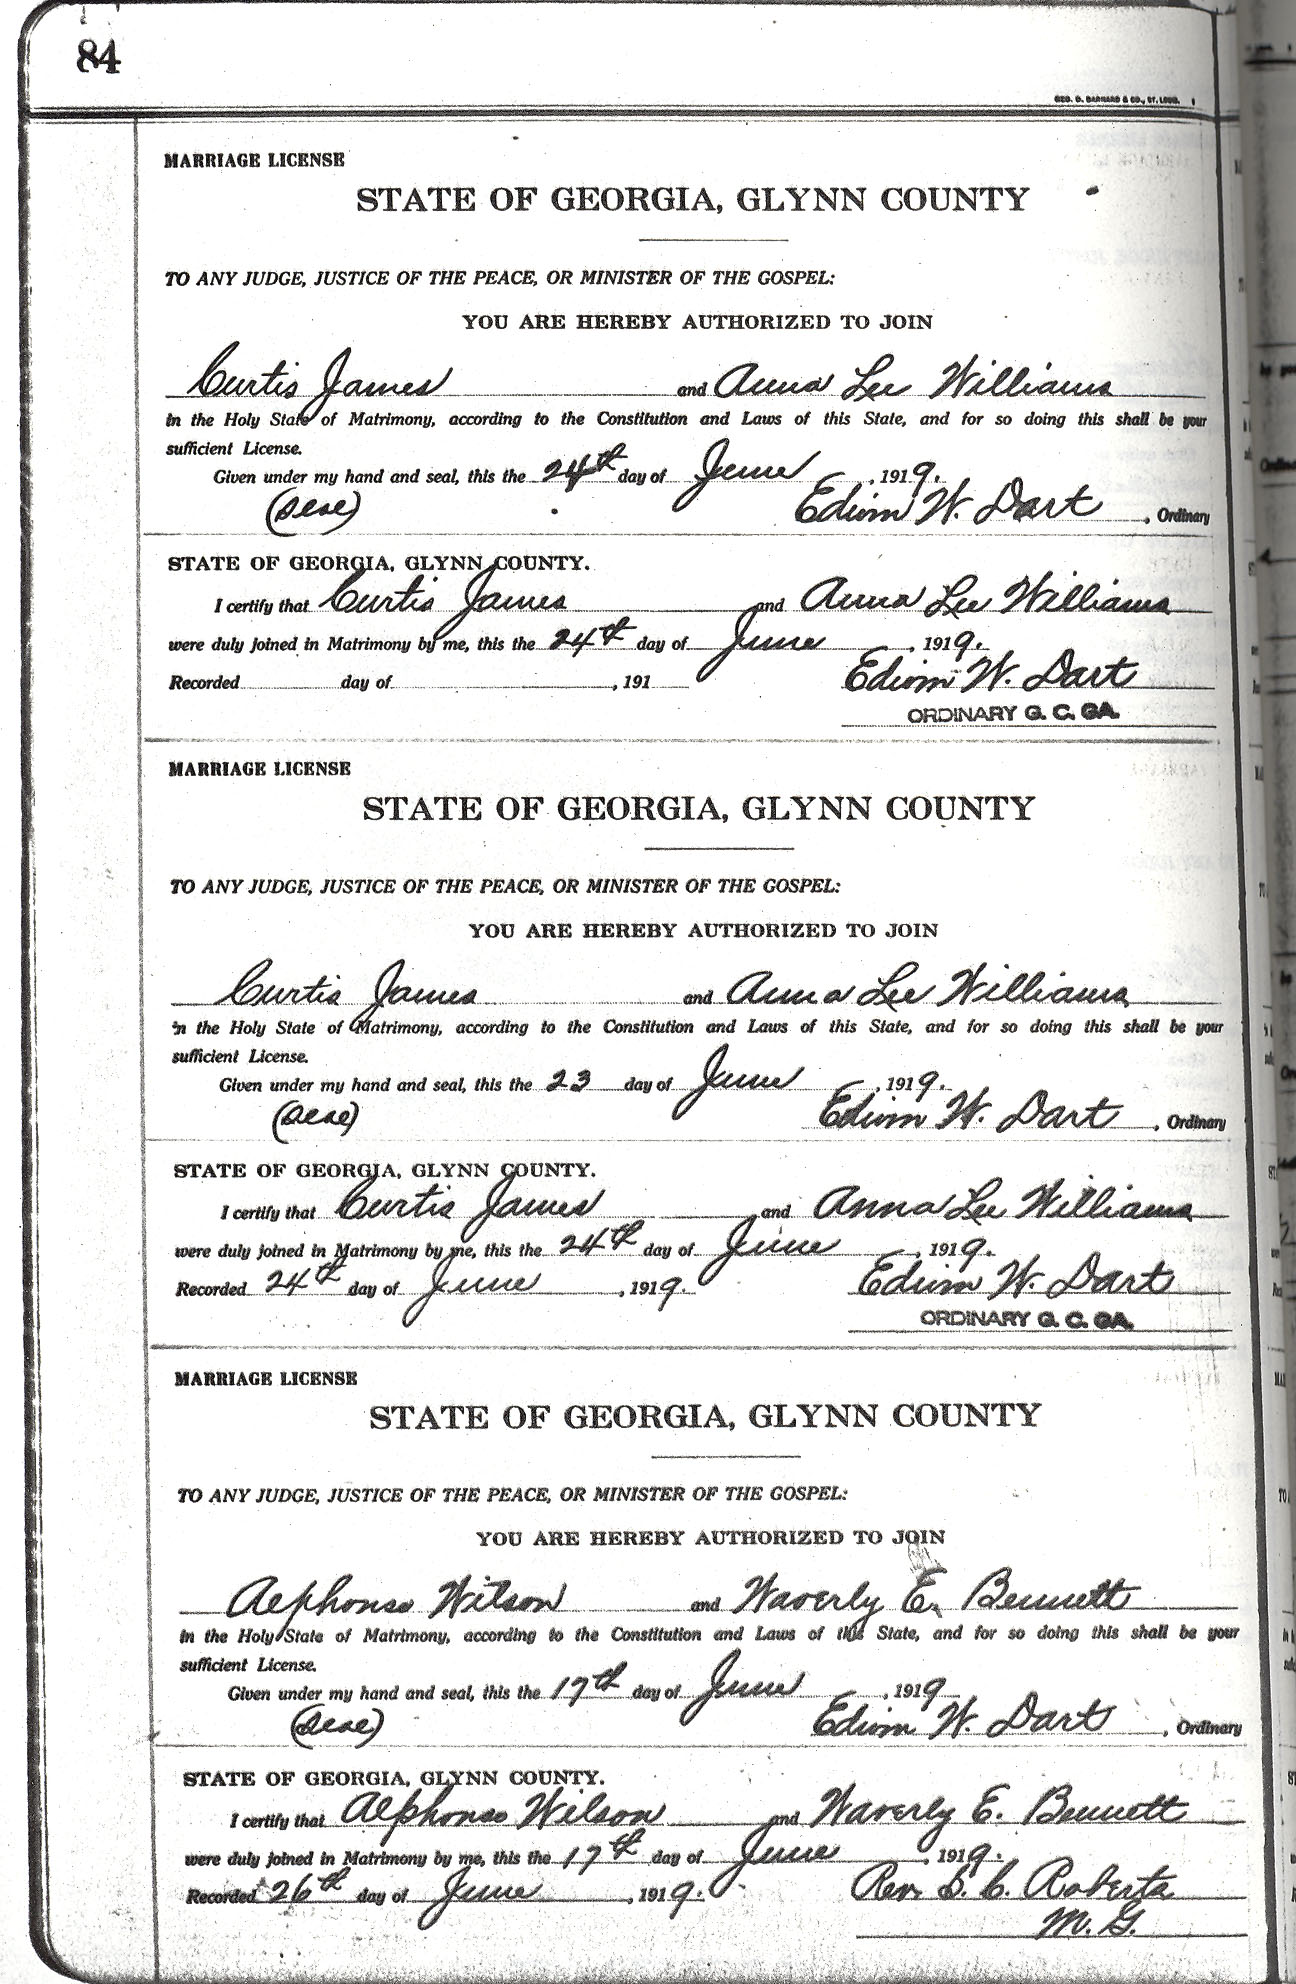 84
GEO. D. BARNARD & CO., ST. LOUIS.
MARRIAGE LICENSE
STATE OF GEORGIA, GLYNN COUNTY
TO ANY JUDGE, JUSTICE OF THE PEACE, OR MINISTER OF THE GOSPEL:
YOU ARE HEREBY AUTHORIZED TO JOIN
Curtis James and Anna Lee Williams
in the Holy State of Matrimony, according to the Constitution and Laws of this State, and for so doing this shall be your
sufficient License.
Given under my hand and seal, this the 24th day of June, 1919.
(Seal) Edwin W. Dart, Ordinary
STATE OF GEORGIA, GLYNN COUNTY.
I certify that Curtis James and Anna Lee Williams
were duly joined in Matrimony by me, this the 24th day of June, 1919.
Recorded day of , 191 Edwin W. Dart
ORDINARY G. C. GA.
MARRIAGE LICENSE
STATE OF GEORGIA, GLYNN COUNTY
TO ANY JUDGE, JUSTICE OF THE PEACE, OR MINISTER OF THE GOSPEL:
YOU ARE HEREBY AUTHORIZED TO JOIN
Curtis James and Anna Lee Williams
in the Holy State of Matrimony, according to the Constitution and Laws of this State, and for so doing this shall be your
sufficient License.
Given under my hand and seal, this the 23 day of June, 1919.
(Seal) Edwin W. Dart, Ordinary
STATE OF GEORGIA, GLYNN COUNTY.
I certify that Curtis James and Anna Lee Williams
were duly joined in Matrimony by me, this the 24th day of June, 1919.
Recorded 24th day of June, 1919. Edwin W. Dart
ORDINARY G. C. GA.
MARRIAGE LICENSE
STATE OF GEORGIA, GLYNN COUNTY
TO ANY JUDGE, JUSTICE OF THE PEACE, OR MINISTER OF THE GOSPEL:
YOU ARE HEREBY AUTHORIZED TO JOIN
Alphonso Wilson and Waverly E. Bennett
in the Holy State of Matrimony, according to the Constitution and Laws of this State, and for so doing this shall be your
sufficient License.
Given under my hand and seal, this the 17th day of June, 1919
(Seal) Edwin W. Dart, Ordinary
STATE OF GEORGIA, GLYNN COUNTY.
I certify that Alphonso Wilson and Waverly E. Bennett
were duly joined in Matrimony by me, this the 17th day of June, 1919.
Recorded 26th day of June, 1919. Rev. S. C. Roberts
M. G.